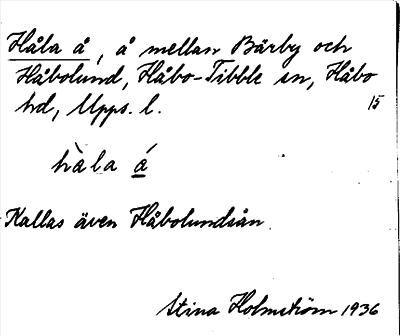 Håla å, å mellan Bärby och
Håbolund, Håbo-Tibble sn, Håbo
hd, Upps. l. 15
hàla á
Kallas även Håbolundsån
Stina Holmström 1936